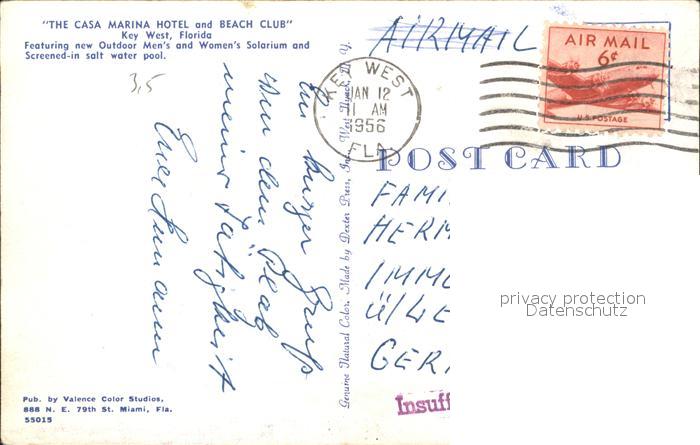 "THE CASA MARINA HOTEL and BEACH CLUB"
Key West, Florida
Featuring new Outdoor Men's and Women's Solarium and
Screened-in salt water pool.
3,5
AIRMAIL
KEY WEST
JAN 12
1 AM
1956
FLA.
AIR MAIL
6¢
U.S. POSTAGE
POST CARD
Genuine Natural Color. Made by Dexter Press, Inc., West Nyack, N. Y.
Ein kurzer Gruß
von dem Platz
meiner Tätigkeit
FAMI
HERM
IMME
Ü/
GER
Insuff
privacy protection
Datenschutz
Pub. by Valence Color Studios,
888 N. E. 79th St. Miami, Fla.
55015